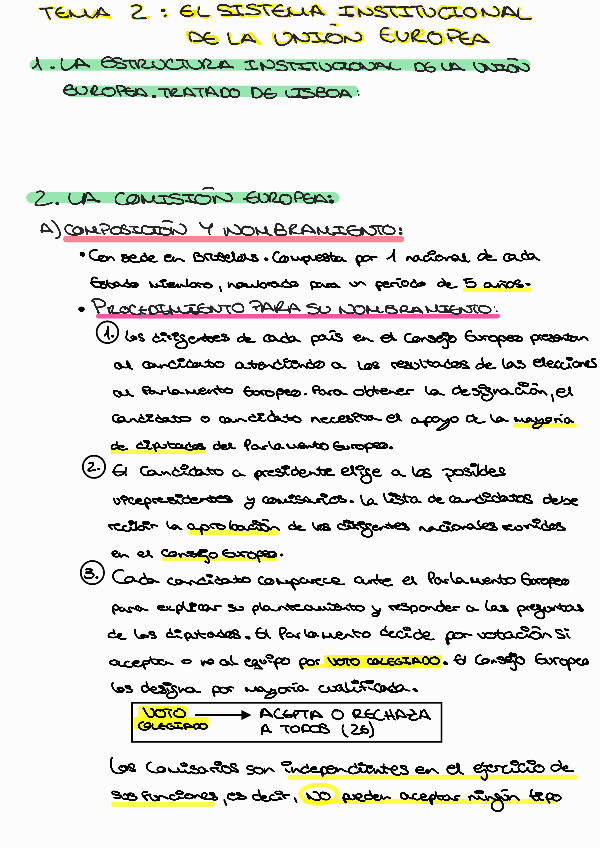 TEMA 2: EL SISTEMA INSTITUCIONAL
DE LA UNIÓN EUROPEA
1. LA ESTRUCTURA INSTITUCIONAL DE LA UNIÓN
EUROPEA. TRATADO DE LISBOA:
2. LA COMISIÓN EUROPEA:
A) COMPOSICIÓN Y NOMBRAMIENTO:
• Con sede en Bruselas. Compuesta por 1 nacional de cada
Estado miembro, nombrado para un periodo de 5 años.
• PROCEDIMIENTO PARA SU NOMBRAMIENTO:
1. Los dirigentes de cada país en el Consejo Europeo presentan
al candidato atendiendo a los resultados de las elecciones
al Parlamento Europeo. Para obtener la designación, el
candidato o candidato necesitan el apoyo de la mayoría
de diputados del Parlamento Europeo.
2. El Candidato a presidente elige a los posibles
vicepresidentes y comisarios. La lista de candidatos debe
recibir la aprobación de los dirigentes nacionales reunidos
en el Consejo Europeo.
3. Cada candidato comparece ante el Parlamento Europeo
para explicar su planteamiento y responder a las preguntas
de los diputados. El Parlamento decide por votación si
aceptan o no al equipo por VOTO COLEGIADO. El Consejo Europeo
los designa por mayoría cualificada.
VOTO COLEGIADO → ACEPTA O RECHAZA
A TODOS (26)
Los Comisarios son independientes en el ejercicio de
sus funciones, es decir, NO pueden aceptar ningún tipo